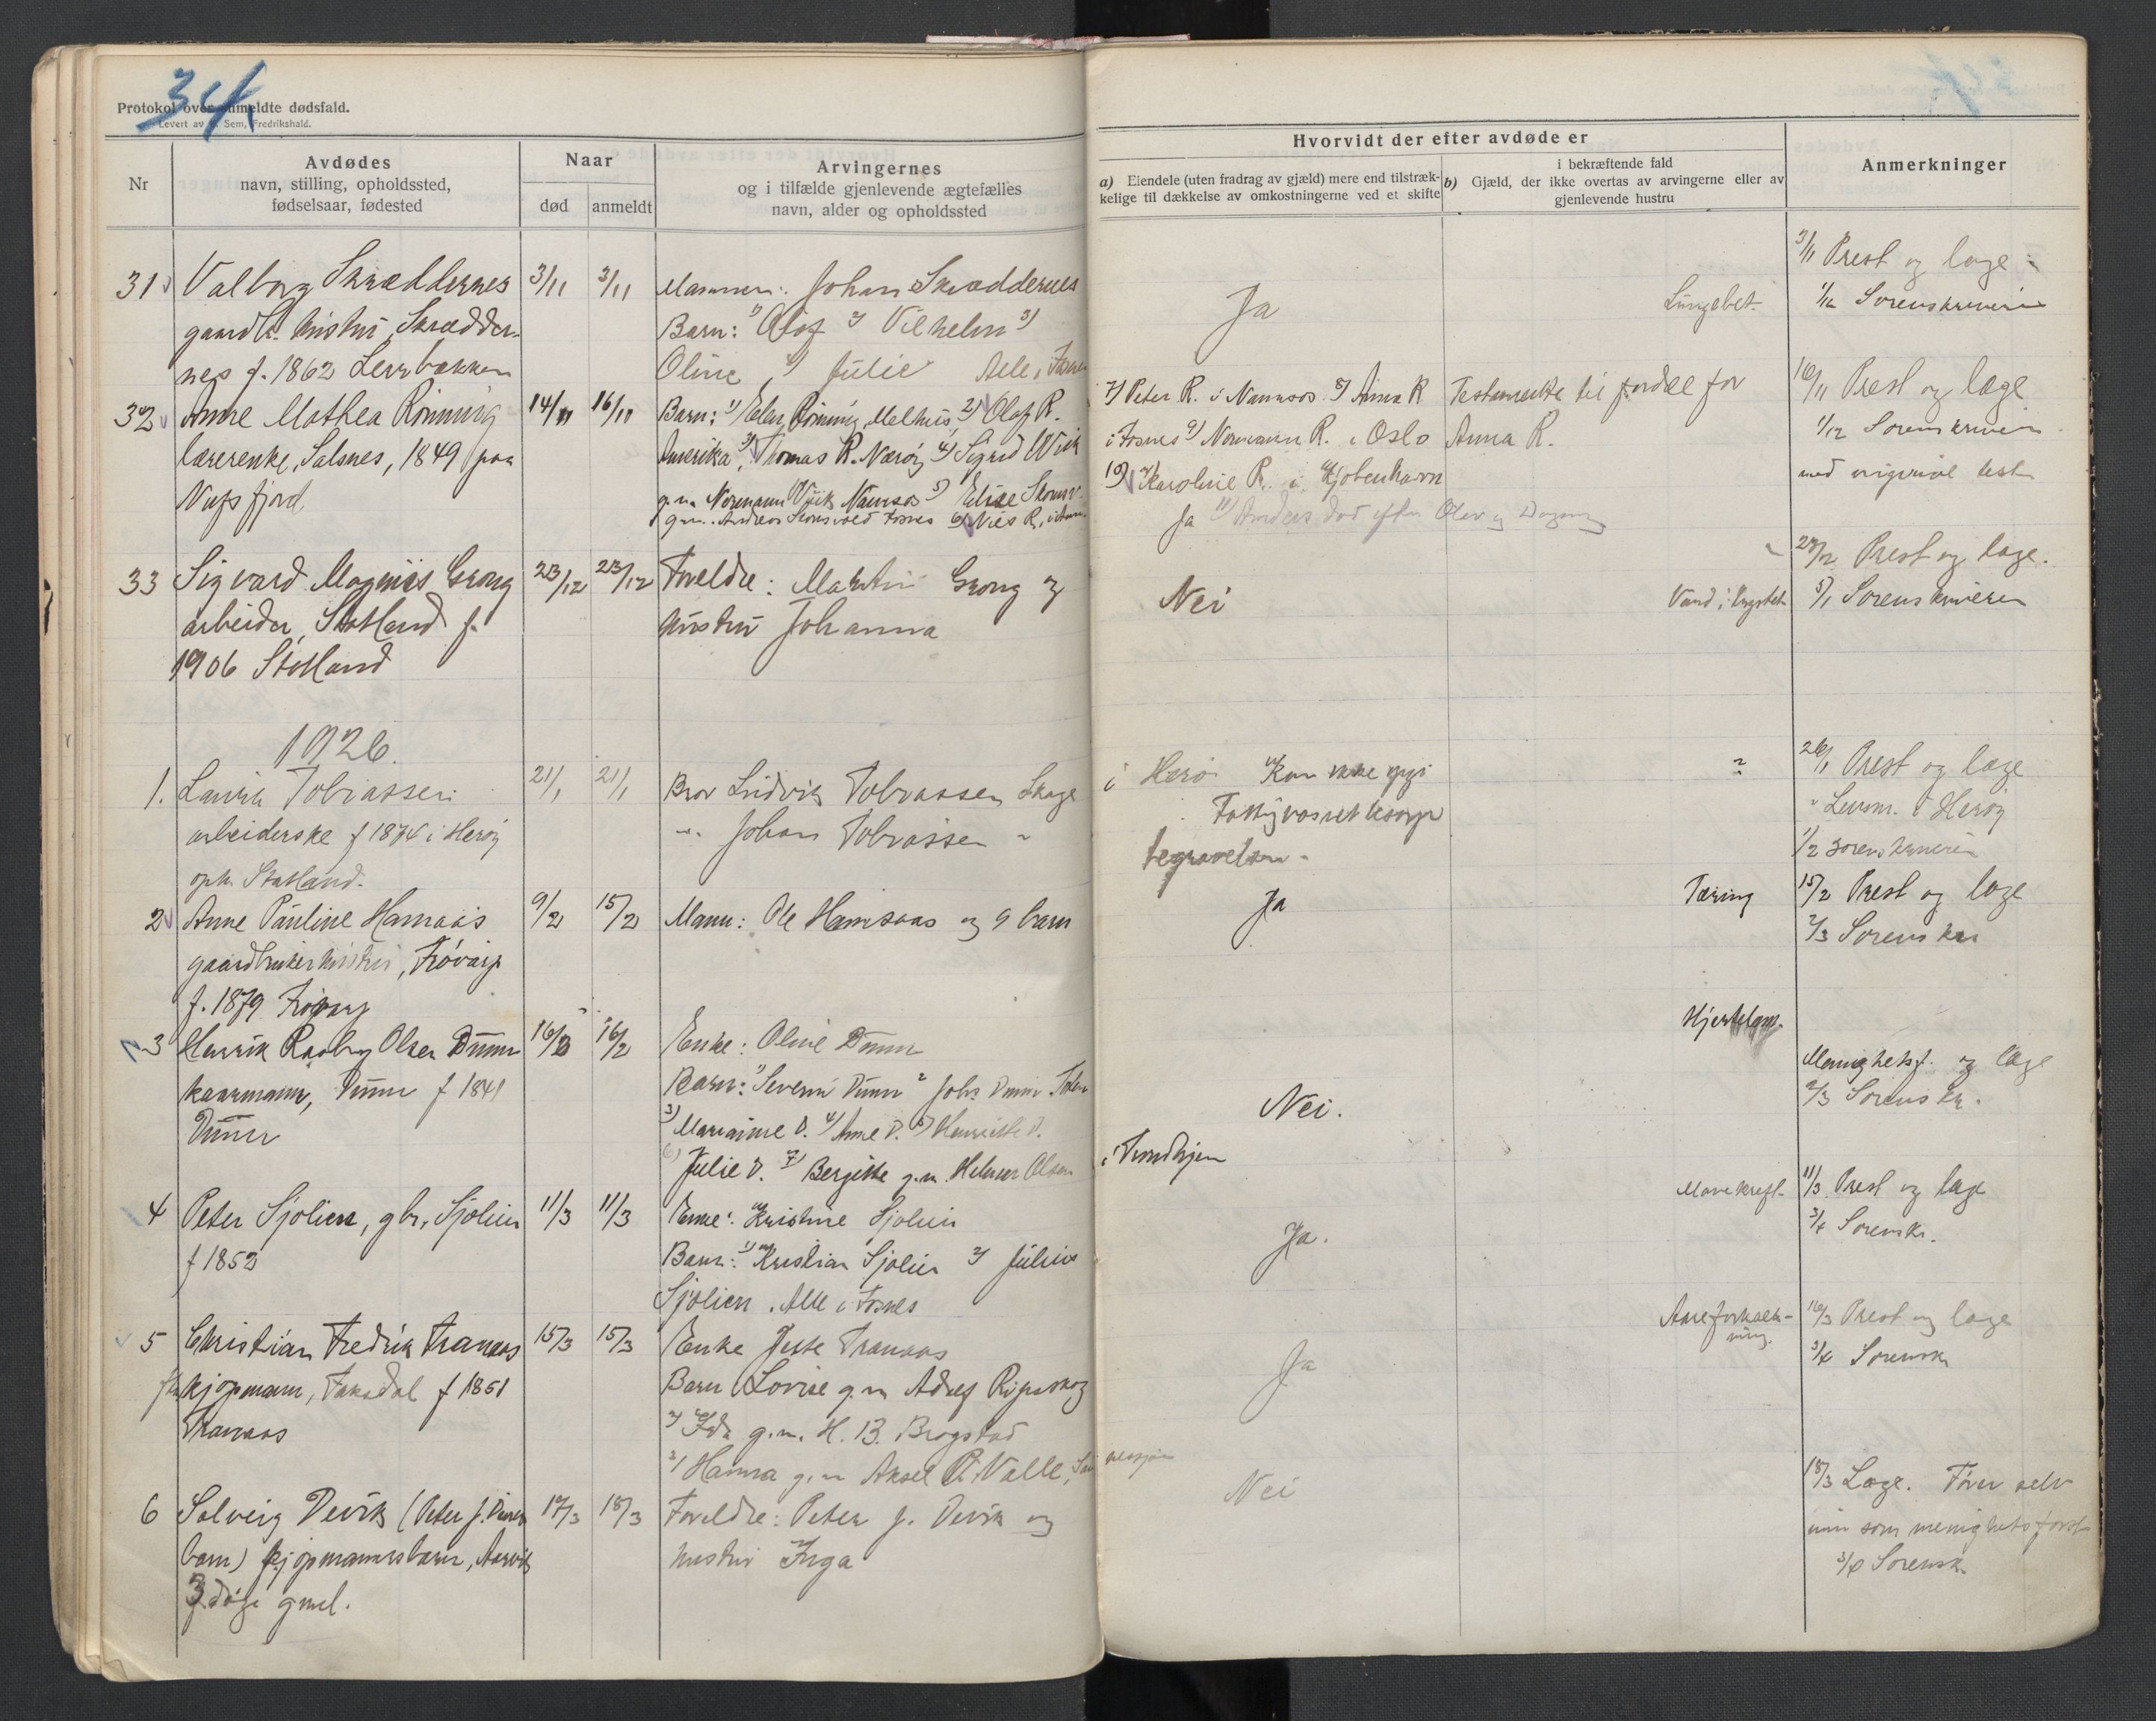 34
Protokol over anmeldte dødsfald.
Levert av Sem, Fredrikshald.
Nr
Avdødes
navn, stilling, opholdssted,
fødselsaar, fødested
Naar
død
anmeldt
Arvingernes
og i tilfælde gjenlevende ægtefælles
navn, alder og opholdssted
Hvorvidt der efter avdøde er
a) Eiendele (uten fradrag av gjæld) mere end tilstræk-
kelige til dækkelse av omkostningerne ved et skifte
i bekræftende fald
b) Gjæld, der ikke overtas av arvingerne eller av
gjenlevende hustru
Anmerkninger
31 Valborg Skræddernes
gaardbr. hustru, Skrædder-
nes f. 1862 Lerrbakken
3/11 3/11
Mannen: Johan Skræddernes
Barn: 1) Olaf 2) Vilhelm 3)
Oline, 4) Julie Alle i Fosnes
Ja
Lungebet.
3/11 Prest og læge
1/12 Sorenskriveren
32 Anne Mathea Rønning
lærerenke, Salsnes, 1849 paa
14/11 16/11
Barn: 1) Elen Rønning, Melhus, 2) Olaf R.
Amerika, 3) Thomas R. Nærøy 4) Sigrid Wiik
g.m. Normann Wiik Namsos 5) Elise
6) Nils R.
7) Peter R. i Namsos 8) Anna R
i Fosnes 9) Normann R. i Oslo
10) Karoline R. i Kjøbenhavn
Ja 11) Anders død efter Olav og Dagny
Testamente til fordel for
Anna R.
16/11 Prest og læge
1/12 Sorenskriveren
med original test
33 Sigvard Magnus Grong
arbeider, Statland f.
1906 Statland
23/12 23/12
Foreldre: Martin Grong og
hustru Johanna
Nei
23/12 Prest og læge.
5/1 Sorenskriveren
1926.
1. Tobiassen
arbeiderske f 1874 i Herøy
oph. Statland.
21/1 21/1
Bror Ludvik Tobiassen
" Johan Tobiassen "
i Herø Kan ikke opgi
Fattigvæsnet besørger
begravelsen.
?
26/1 Prest og læge
" Lensm. i Herøy
1/2 Sorenskriveren
2 Anne Pauline
gaardbrukerhustru,
f. 1879
9/2 15/2
Mann: Ole og 9 barn
Ja
Tæring
15/2 Prest og læge
2/3 Sorenskr
3 Henrik Olsen Duun
kaarmann, Duun f 1841
Duun
16/2 16/2
Enke: Oline Duun
Barn: 1) Severin Duun 2 Johs Duun
3) Marianne D. 4) Anne D. 5) Henriette D.
6) Julie D. 7) Bergitte g.m. Helmer Olsen
i Trondhjem
Nei.
Hjertelam.
Menighetsf. og læge
2/3 Sorenskr.
4 Peter Sjølien, gbr, Sjølien
f 1852
11/3 11/3
Enke: Kristine Sjølien
Barn: 1) Kristian Sjølien 2) Julius
Sjølien. Alle i Fosnes
Ja.
Mavekreft.
11/3 Prest og læge
3/4 Sorenskr.
5 Christian Fredrik Tranaas
fh kjøpmann, f 1851
Tranaas
15/3 15/3
Enke Tranaas
Barn Lovise g.m Adolf
2) Ida g.m. H. B. Brogstad
3) Hanna g.m Aksel R. Valle,
Ja
Aareforkalk-
ning.
16/3 Prest og læge
3/4 Sorenskr
6 Solveig Devik (Peter J. Deviks
barn) kjøpmannsbarn, Aarvik
3 døgn gml.
17/3 18/3
Foreldre: Peter J. Devik og
hustru Inga
Nei
18/3 Læge. Fører selv
inn som menighetsforst
3/4 Sorenskr.